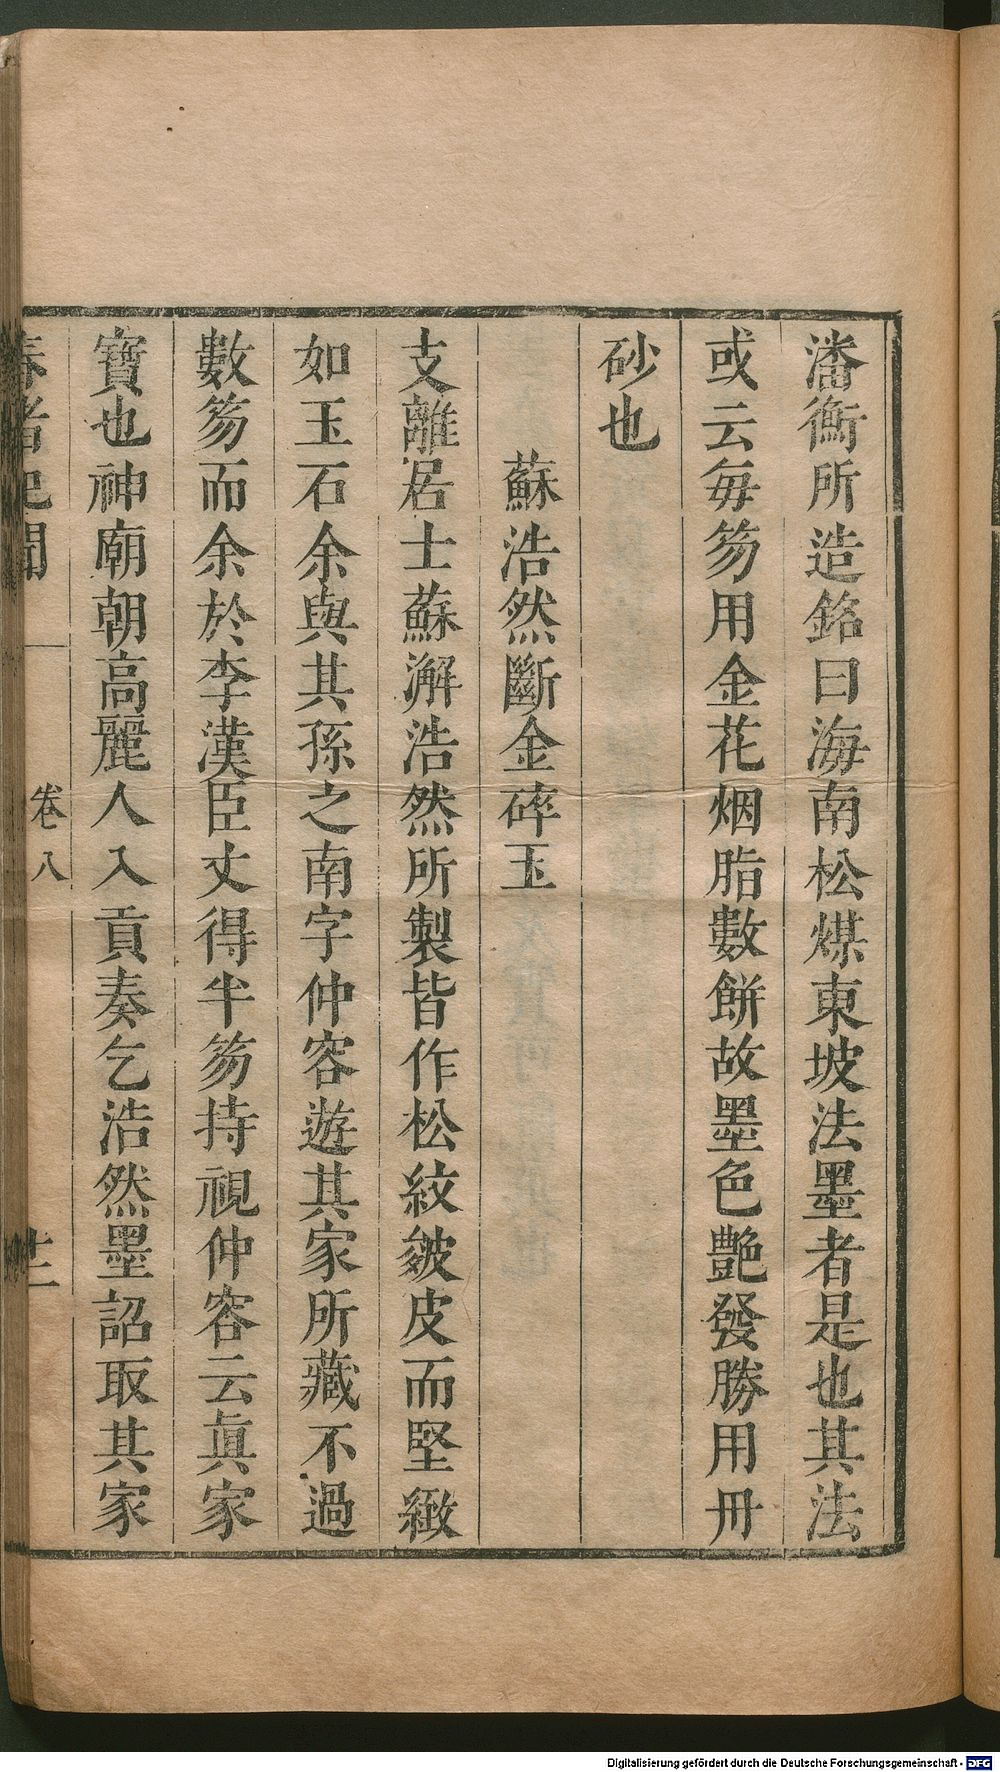 潘衡所造銘曰海南松煤東坡法墨者是也其法
或云每笏用金花烟脂數餅故墨色艷發勝用丹
砂也
蘇浩然斷金碎玉
支離居士蘇澥浩然所製皆作松紋皴皮而堅緻
如玉石余與其孫之南字仲容遊其家所藏不過
數笏而余於李漢臣丈得半笏持視仲容云眞家
寶也神廟朝高麗人入貢奏乞浩然墨詔取其家
春渚紀聞
卷八
十二
Digitalisierung gefördert durch die Deutsche Forschungsgemeinschaft - DFG